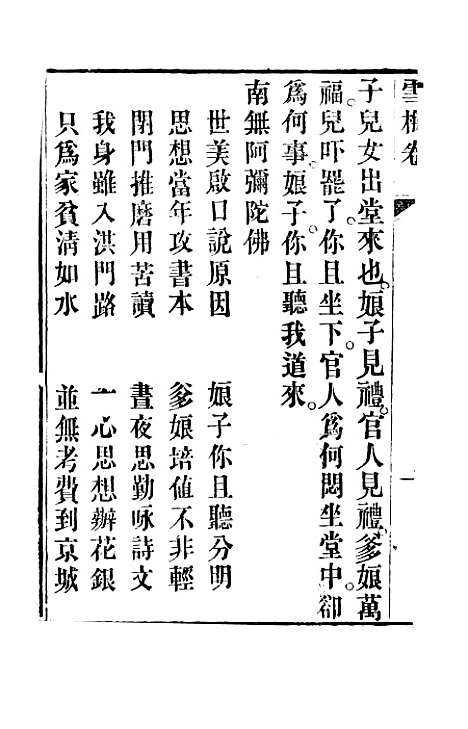 雪梅卷
一
子兒女出堂來也。娘子見禮。官人見禮。爹娘萬
福。兒吓罷了。你且坐下。官人爲何悶坐堂中。卻
爲何事。娘子。你且聽我道來。
南無阿彌陀佛
世美啟口說原因　娘子你且聽分明
思想當年攻書本　爹娘培値不非輕
閉門推磨用苦讀　晝夜思勤咏詩文
我身雖入洪門路　一心思想辦花銀
只爲家貧清如水　並無考費到京城